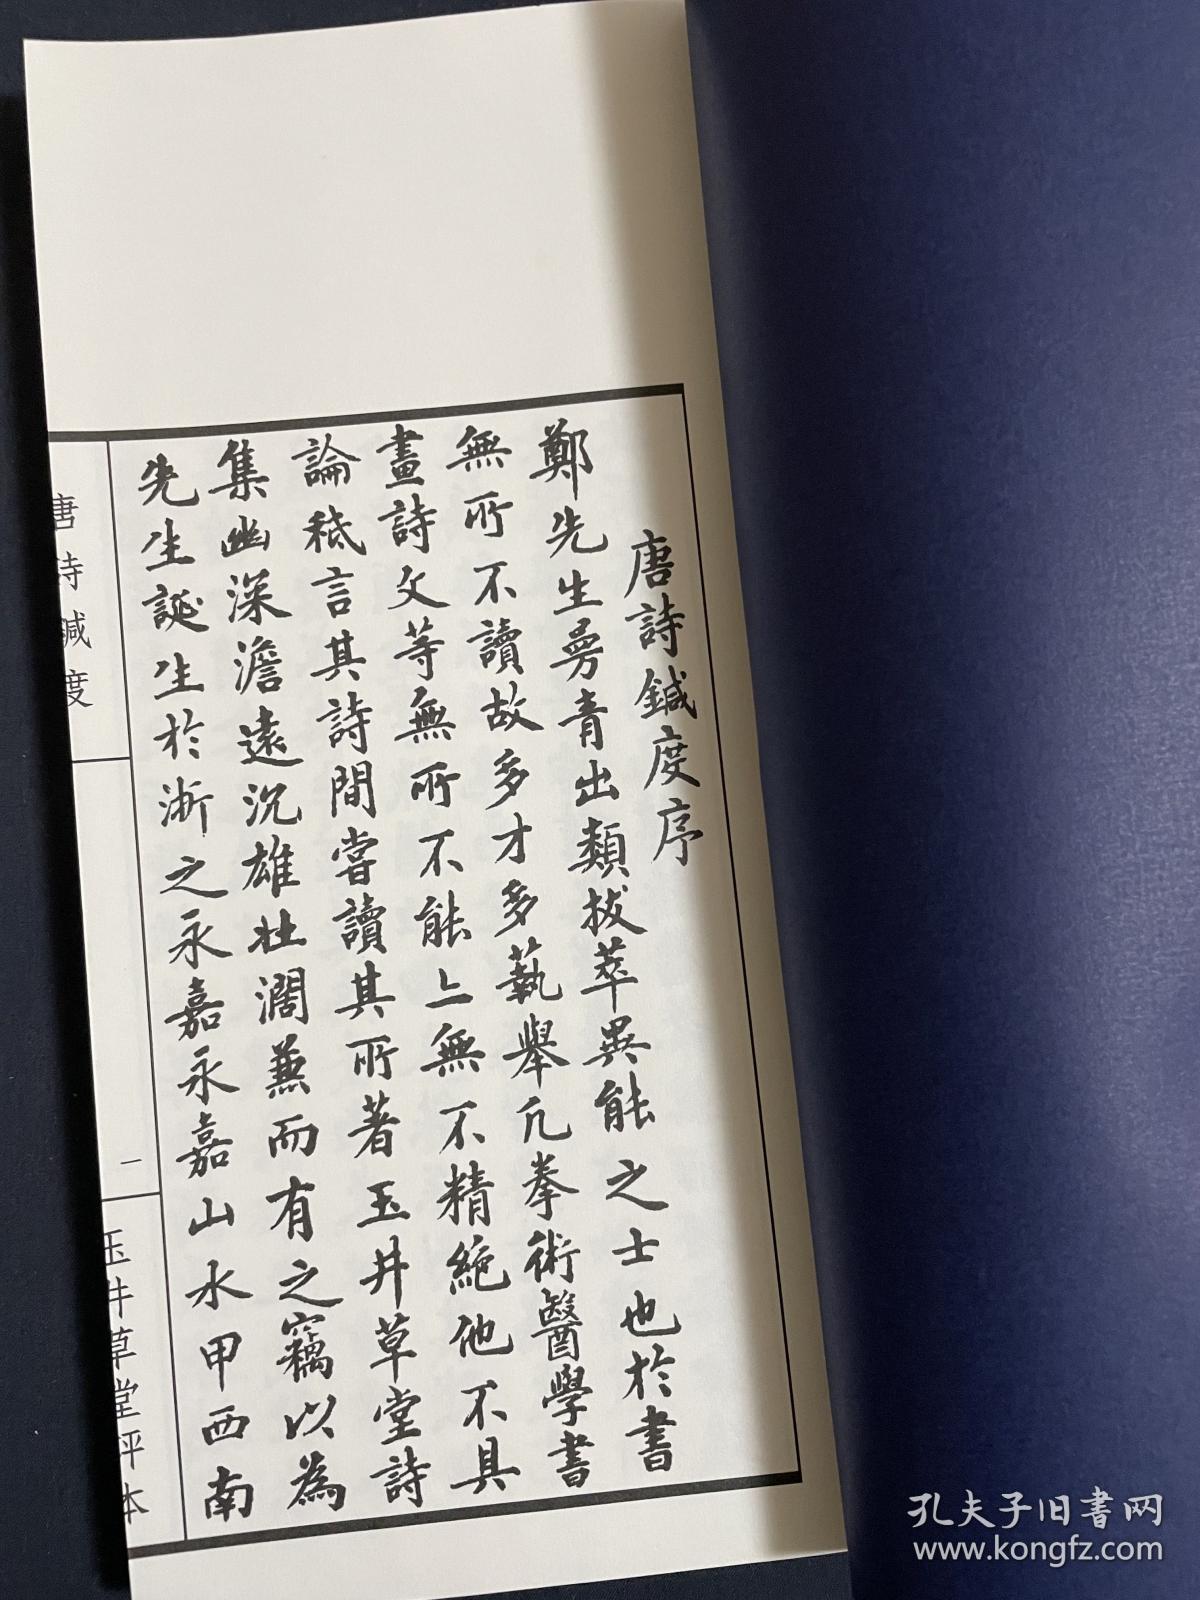 唐詩鍼度序
鄭先生曼青出類拔萃異能之士也於書
無所不讀故多才多藝舉凡拳術醫學書
畫詩文等無所不能亦無不精絶他不具
論祇言其詩間嘗讀其所著玉井草堂詩
集幽深澹遠沉雄壯濶兼而有之竊以為
先生誕生於淅之永嘉永嘉山水甲西南
唐詩鍼度
一
玉井草堂評本
孔夫子旧书网
www.kongfz.com